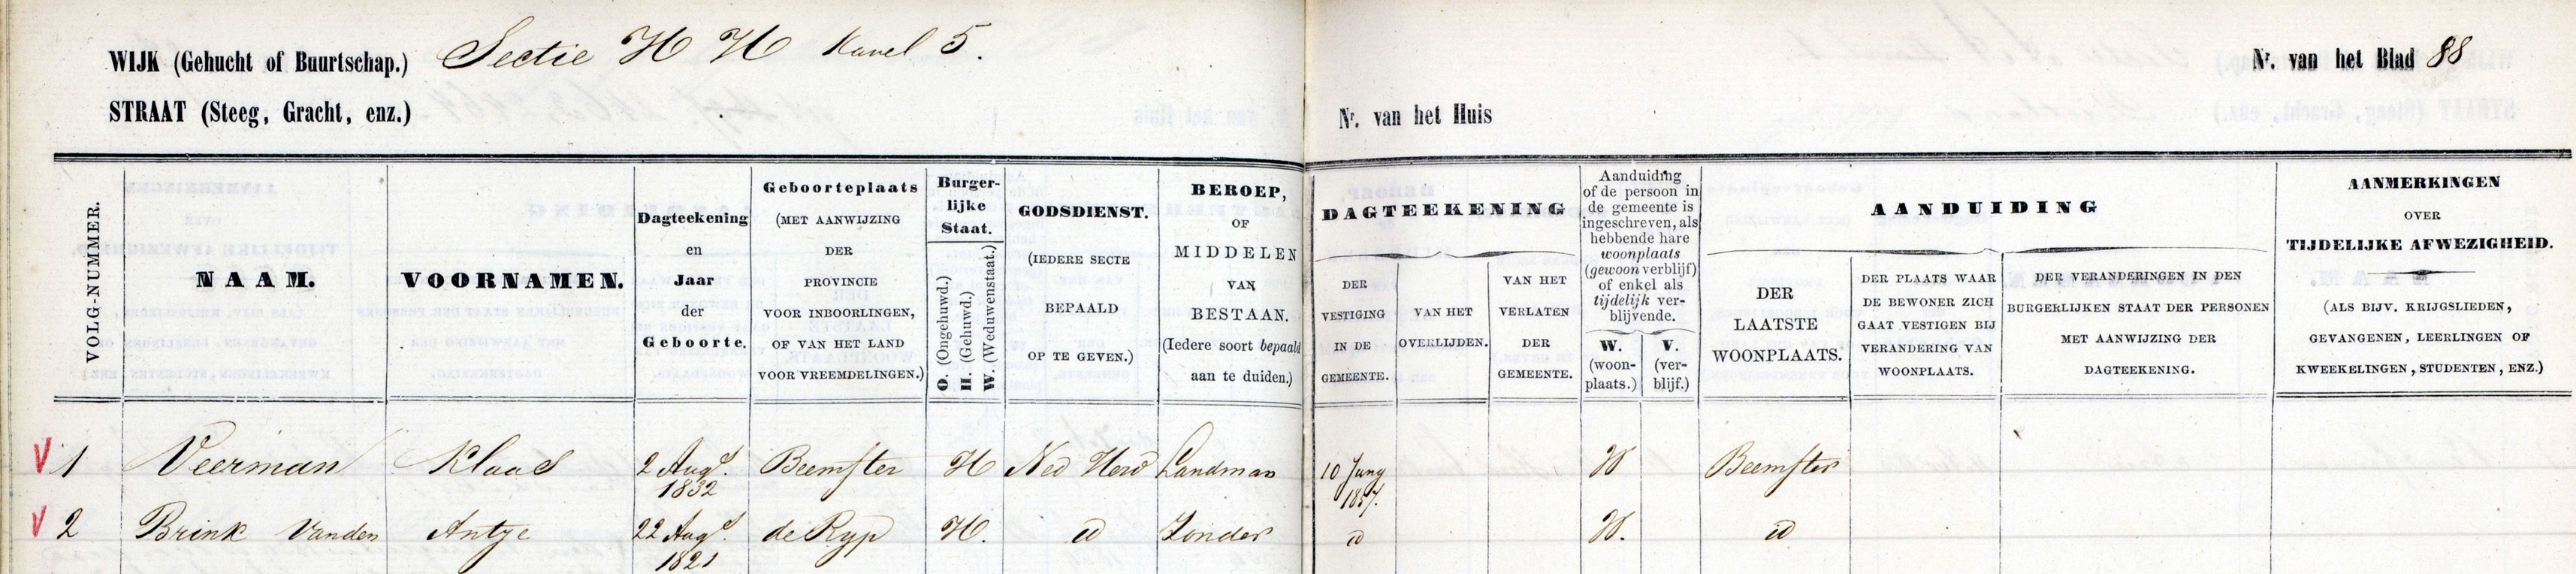 WIJK (Gehucht of Buurtschap.) Sectie H H Kavel 5.
Nr. van het Blad 88
STRAAT (Steeg, Gracht, enz.)
Nr. van het Huis
VOLG-NUMMER.
NAAM.
VOORNAMEN.
Dagteekening
en
Jaar
der
Geboorte.
Geboorteplaats
(MET AANWIJZING
DER
PROVINCIE
VOOR INBOORLINGEN,
OF VAN HET LAND
VOOR VREEMDELINGEN.)
Burger-
lijke
Staat.
O. (Ongehuwd.)
H. (Gehuwd.)
W. (Weduwenstaat.)
GODSDIENST.
(IEDERE SECTE
BEPAALD
OP TE GEVEN.)
BEROEP,
OF
MIDDELEN
VAN
BESTAAN.
(Iedere soort bepaald
aan te duiden.)
DAGTEEKENING
DER
VESTIGING
IN DE
GEMEENTE.
VAN HET
OVERLIJDEN.
VAN HET
VERLATEN
DER
GEMEENTE.
Aanduiding
of de persoon in
de gemeente is
ingeschreven, als
hebbende hare
woonplaats
(gewoon verblijf)
of enkel als
tijdelijk ver-
blijvende.
W.
(woon-
plaats.)
V.
(ver-
blijf.)
AANDUIDING
DER
LAATSTE
WOONPLAATS.
DER PLAATS WAAR
DE BEWONER ZICH
GAAT VESTIGEN BIJ
VERANDERING VAN
WOONPLAATS.
DER VERANDERINGEN IN DEN
BURGERLIJKEN STAAT DER PERSONEN
MET AANWIJZING DER
DAGTEEKENING.
AANMERKINGEN
OVER
TIJDELIJKE AFWEZIGHEID.
(ALS BIJV. KRIJGSLIEDEN,
GEVANGENEN, LEERLINGEN OF
KWEEKELINGEN, STUDENTEN, ENZ.)
V 1 Veerman Klaas 2 Augt. Beemster H Ned Herd Landman 10 Juny W Beemster
1832 1857.
V 2 Brink Vanden Antje 22 Augt. de Ryp H. id Zonder id W. id
1821